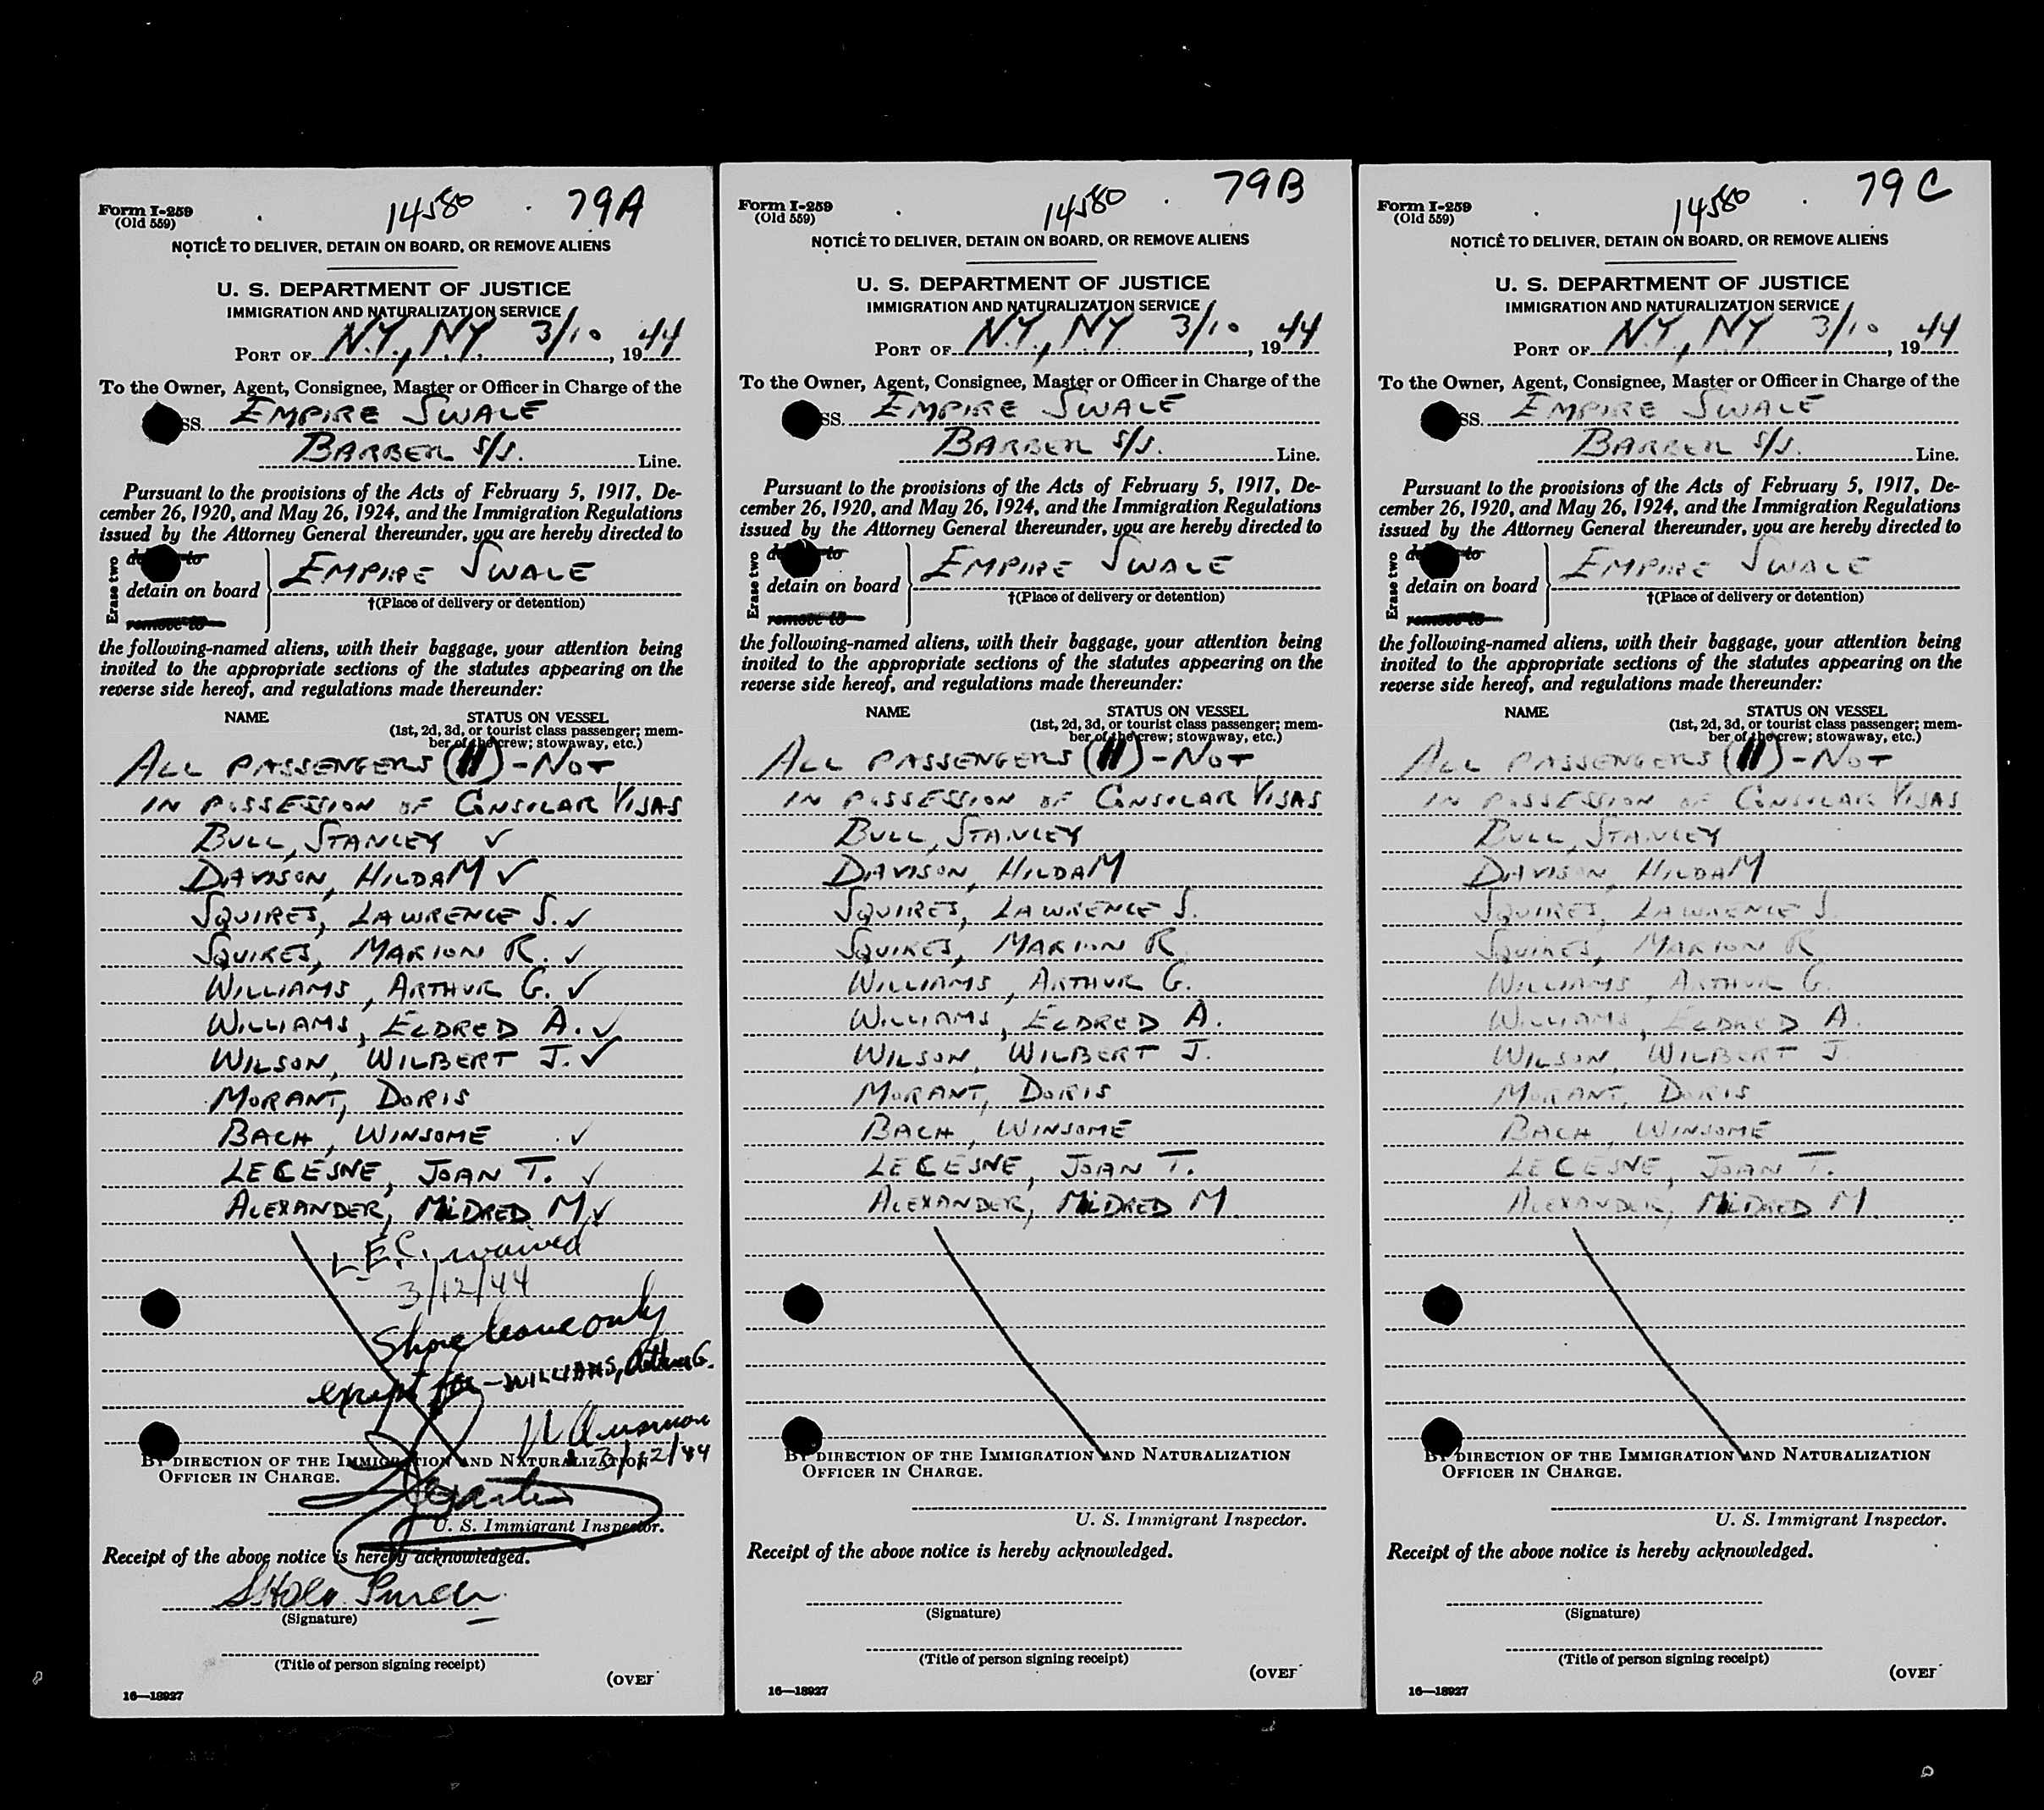 Form I-259
(Old 559)
14580
79A
NOTICE TO DELIVER, DETAIN ON BOARD, OR REMOVE ALIENS
U. S. DEPARTMENT OF JUSTICE
IMMIGRATION AND NATURALIZATION SERVICE
PORT OF N.Y., NY 3/10, 1944
To the Owner, Agent, Consignee, Master or Officer in Charge of the
SS. EMPIRE SWALE
BARBER S/S. Line.
Pursuant to the provisions of the Acts of February 5, 1917, De-
cember 26, 1920, and May 26, 1924, and the Immigration Regulations
issued by the Attorney General thereunder, you are hereby directed to
Erase two
to
detain on board
remove to
EMPIRE SWALE
†(Place of delivery or detention)
the following-named aliens, with their baggage, your attention being
invited to the appropriate sections of the statutes appearing on the
reverse side hereof, and regulations made thereunder:
NAME STATUS ON VESSEL
(1st, 2d, 3d, or tourist class passenger; mem-
ber of the crew; stowaway, etc.)
ALL PASSENGERS (11) - NOT
IN POSSESSION OF CONSULAR VISAS
BULL, STANLEY ✓
DAVISON, HILDA M ✓
SQUIRES, LAWRENCE S. ✓
SQUIRES, MARION R. ✓
WILLIAMS, ARTHUR G. ✓
WILLIAMS, ELDRED A. ✓
WILSON, WILBERT J. ✓
MORANT, DORIS
BACH, WINSOME ✓
LECESNE, JOAN T. ✓
ALEXANDER, MILDRED M ✓
L.E.C. waived
3/12/44
Shore leave only
except for - WILLIAMS, Arthur G.
3/12/44
BY DIRECTION OF THE IMMIGRATION AND NATURALIZATION
OFFICER IN CHARGE.
U. S. Immigrant Inspector.
Receipt of the above notice is hereby acknowledged.
(Signature)
(Title of person signing receipt)
(OVER
16—18927
Form I-259
(Old 559)
14580
79B
NOTICE TO DELIVER, DETAIN ON BOARD, OR REMOVE ALIENS
U. S. DEPARTMENT OF JUSTICE
IMMIGRATION AND NATURALIZATION SERVICE
PORT OF N.Y., NY 3/10, 1944
To the Owner, Agent, Consignee, Master or Officer in Charge of the
SS. EMPIRE SWALE
BARBER S/S. Line.
Pursuant to the provisions of the Acts of February 5, 1917, De-
cember 26, 1920, and May 26, 1924, and the Immigration Regulations
issued by the Attorney General thereunder, you are hereby directed to
Erase two
to
detain on board
remove to
EMPIRE SWALE
†(Place of delivery or detention)
the following-named aliens, with their baggage, your attention being
invited to the appropriate sections of the statutes appearing on the
reverse side hereof, and regulations made thereunder:
NAME STATUS ON VESSEL
(1st, 2d, 3d, or tourist class passenger; mem-
ber of the crew; stowaway, etc.)
ALL PASSENGERS (11) - NOT
IN POSSESSION OF CONSULAR VISAS
BULL, STANLEY
DAVISON, HILDA M
SQUIRES, LAWRENCE S.
SQUIRES, MARION R
WILLIAMS, ARTHUR G.
WILLIAMS, ELDRED A.
WILSON, WILBERT J.
MORANT, DORIS
BACH, WINSOME
LECESNE, JOAN T.
ALEXANDER, MILDRED M.
BY DIRECTION OF THE IMMIGRATION AND NATURALIZATION
OFFICER IN CHARGE.
U. S. Immigrant Inspector.
Receipt of the above notice is hereby acknowledged.
(Signature)
(Title of person signing receipt)
(OVER
16—18927
Form I-259
(Old 559)
14580
79C
NOTICE TO DELIVER, DETAIN ON BOARD, OR REMOVE ALIENS
U. S. DEPARTMENT OF JUSTICE
IMMIGRATION AND NATURALIZATION SERVICE
PORT OF N.Y., NY 3/10, 1944
To the Owner, Agent, Consignee, Master or Officer in Charge of the
SS. EMPIRE SWALE
BARBER S/S. Line.
Pursuant to the provisions of the Acts of February 5, 1917, De-
cember 26, 1920, and May 26, 1924, and the Immigration Regulations
issued by the Attorney General thereunder, you are hereby directed to
Erase two
to
detain on board
remove to
EMPIRE SWALE
†(Place of delivery or detention)
the following-named aliens, with their baggage, your attention being
invited to the appropriate sections of the statutes appearing on the
reverse side hereof, and regulations made thereunder:
NAME STATUS ON VESSEL
(1st, 2d, 3d, or tourist class passenger; mem-
ber of the crew; stowaway, etc.)
ALL PASSENGERS (11) - NOT
IN POSSESSION OF CONSULAR VISAS
BULL, STANLEY
DAVISON, HILDA M
SQUIRES, LAWRENCE S.
SQUIRES, MARION R
WILLIAMS, ARTHUR G.
WILLIAMS, ELDRED A.
WILSON, WILBERT J.
MORANT, DORIS
BACH, WINSOME
LECESNE, JOAN T.
ALEXANDER, MILDRED M.
BY DIRECTION OF THE IMMIGRATION AND NATURALIZATION
OFFICER IN CHARGE.
U. S. Immigrant Inspector.
Receipt of the above notice is hereby acknowledged.
(Signature)
(Title of person signing receipt)
(OVER
16—18927